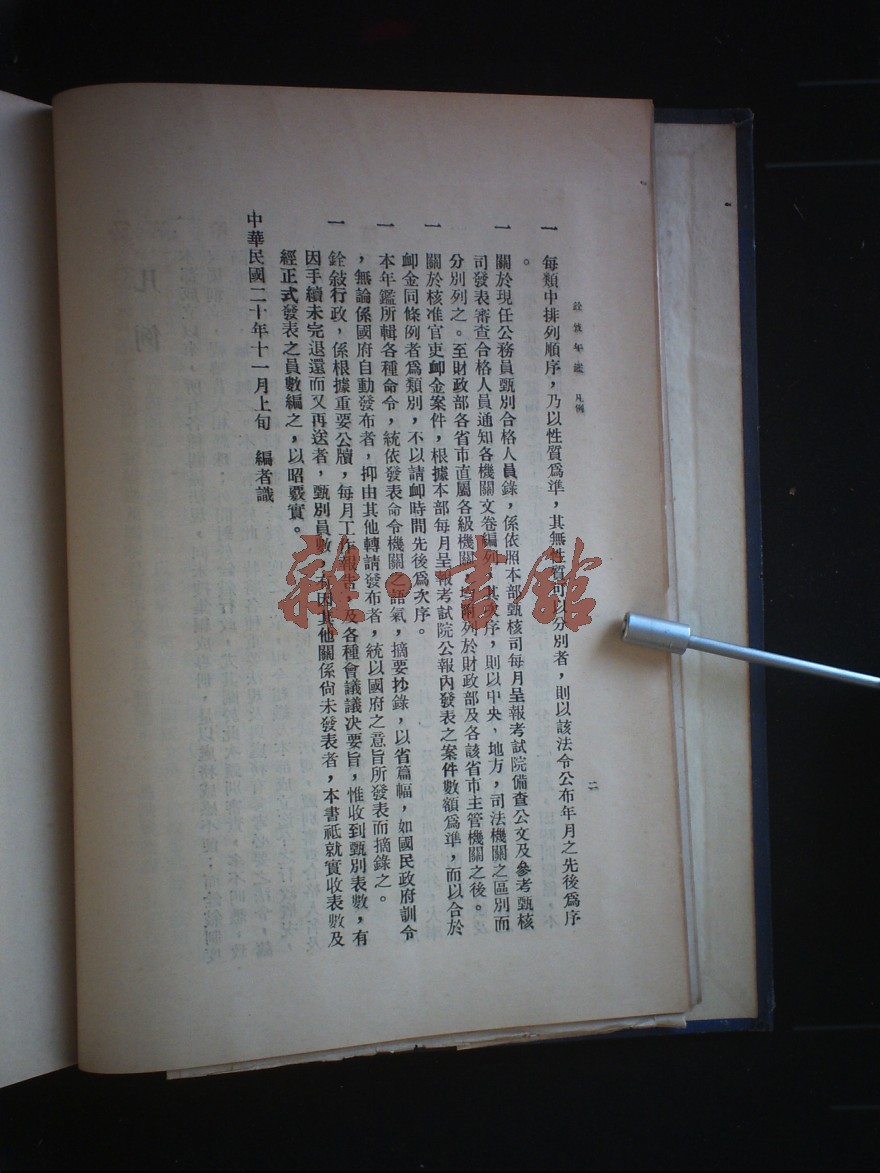 銓敘年鑑　凡例
二
一　每類中排列順序，乃以性質爲準，其無性質可以分別者，則以該法令公布年月之先後爲序
。
一　關於現任公務員甄別合格人員錄，係依照本部甄核司每月呈報考試院備查公文及參考甄核
司發表審查合格人員通知各機關文卷編列，其次序，則以中央，地方，司法機關之區別而
分別列之。至財政部各省市直屬各級機關，均附列於財政部及各該省市主管機關之後。
一　關於核准官吏卹金案件，根據本部每月呈報考試院公報內發表之案件數額爲準，而以合於
卹金同條例者爲類別，不以請卹時間先後爲次序。
一　本年鑑所輯各種命令，統依發表命令機關之語氣，摘要抄錄，以省篇幅，如國民政府訓令
，無論係國府自動發布者，抑由其他轉請發布者，統以國府之意旨所發表而摘錄之。
一　銓敍行政，係根據重要公牘，每月工作報告，及各種會議議決要旨，惟收到甄別表數，有
因手續未完退還而又再送者，甄別員數，有因其他關係尙未發表者，本書祗就實收表數及
經正式發表之員數編之，以昭覈實。
中華民國二十年十一月上旬　編者識
雜·書館